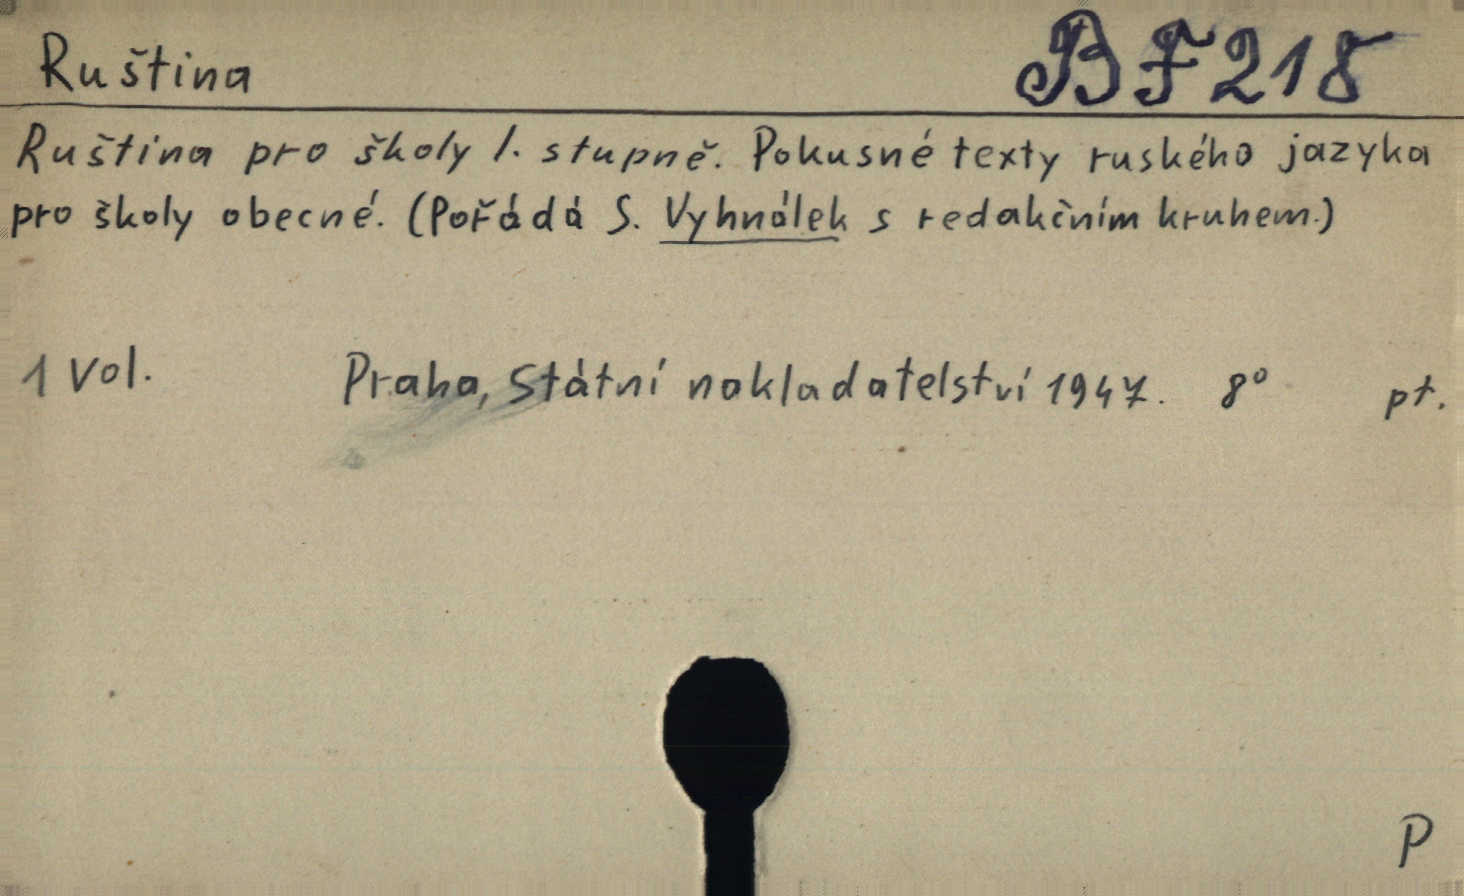 Ruština BF218
Ruština pro školy I. stupně. Pokusné texty ruského jazyka
pro školy obecné. (Pořádá S. Vyhnálek s redakčním kruhem.)
1 Vol. Praha, Státní nakladatelství 1947. 8° pt.
P